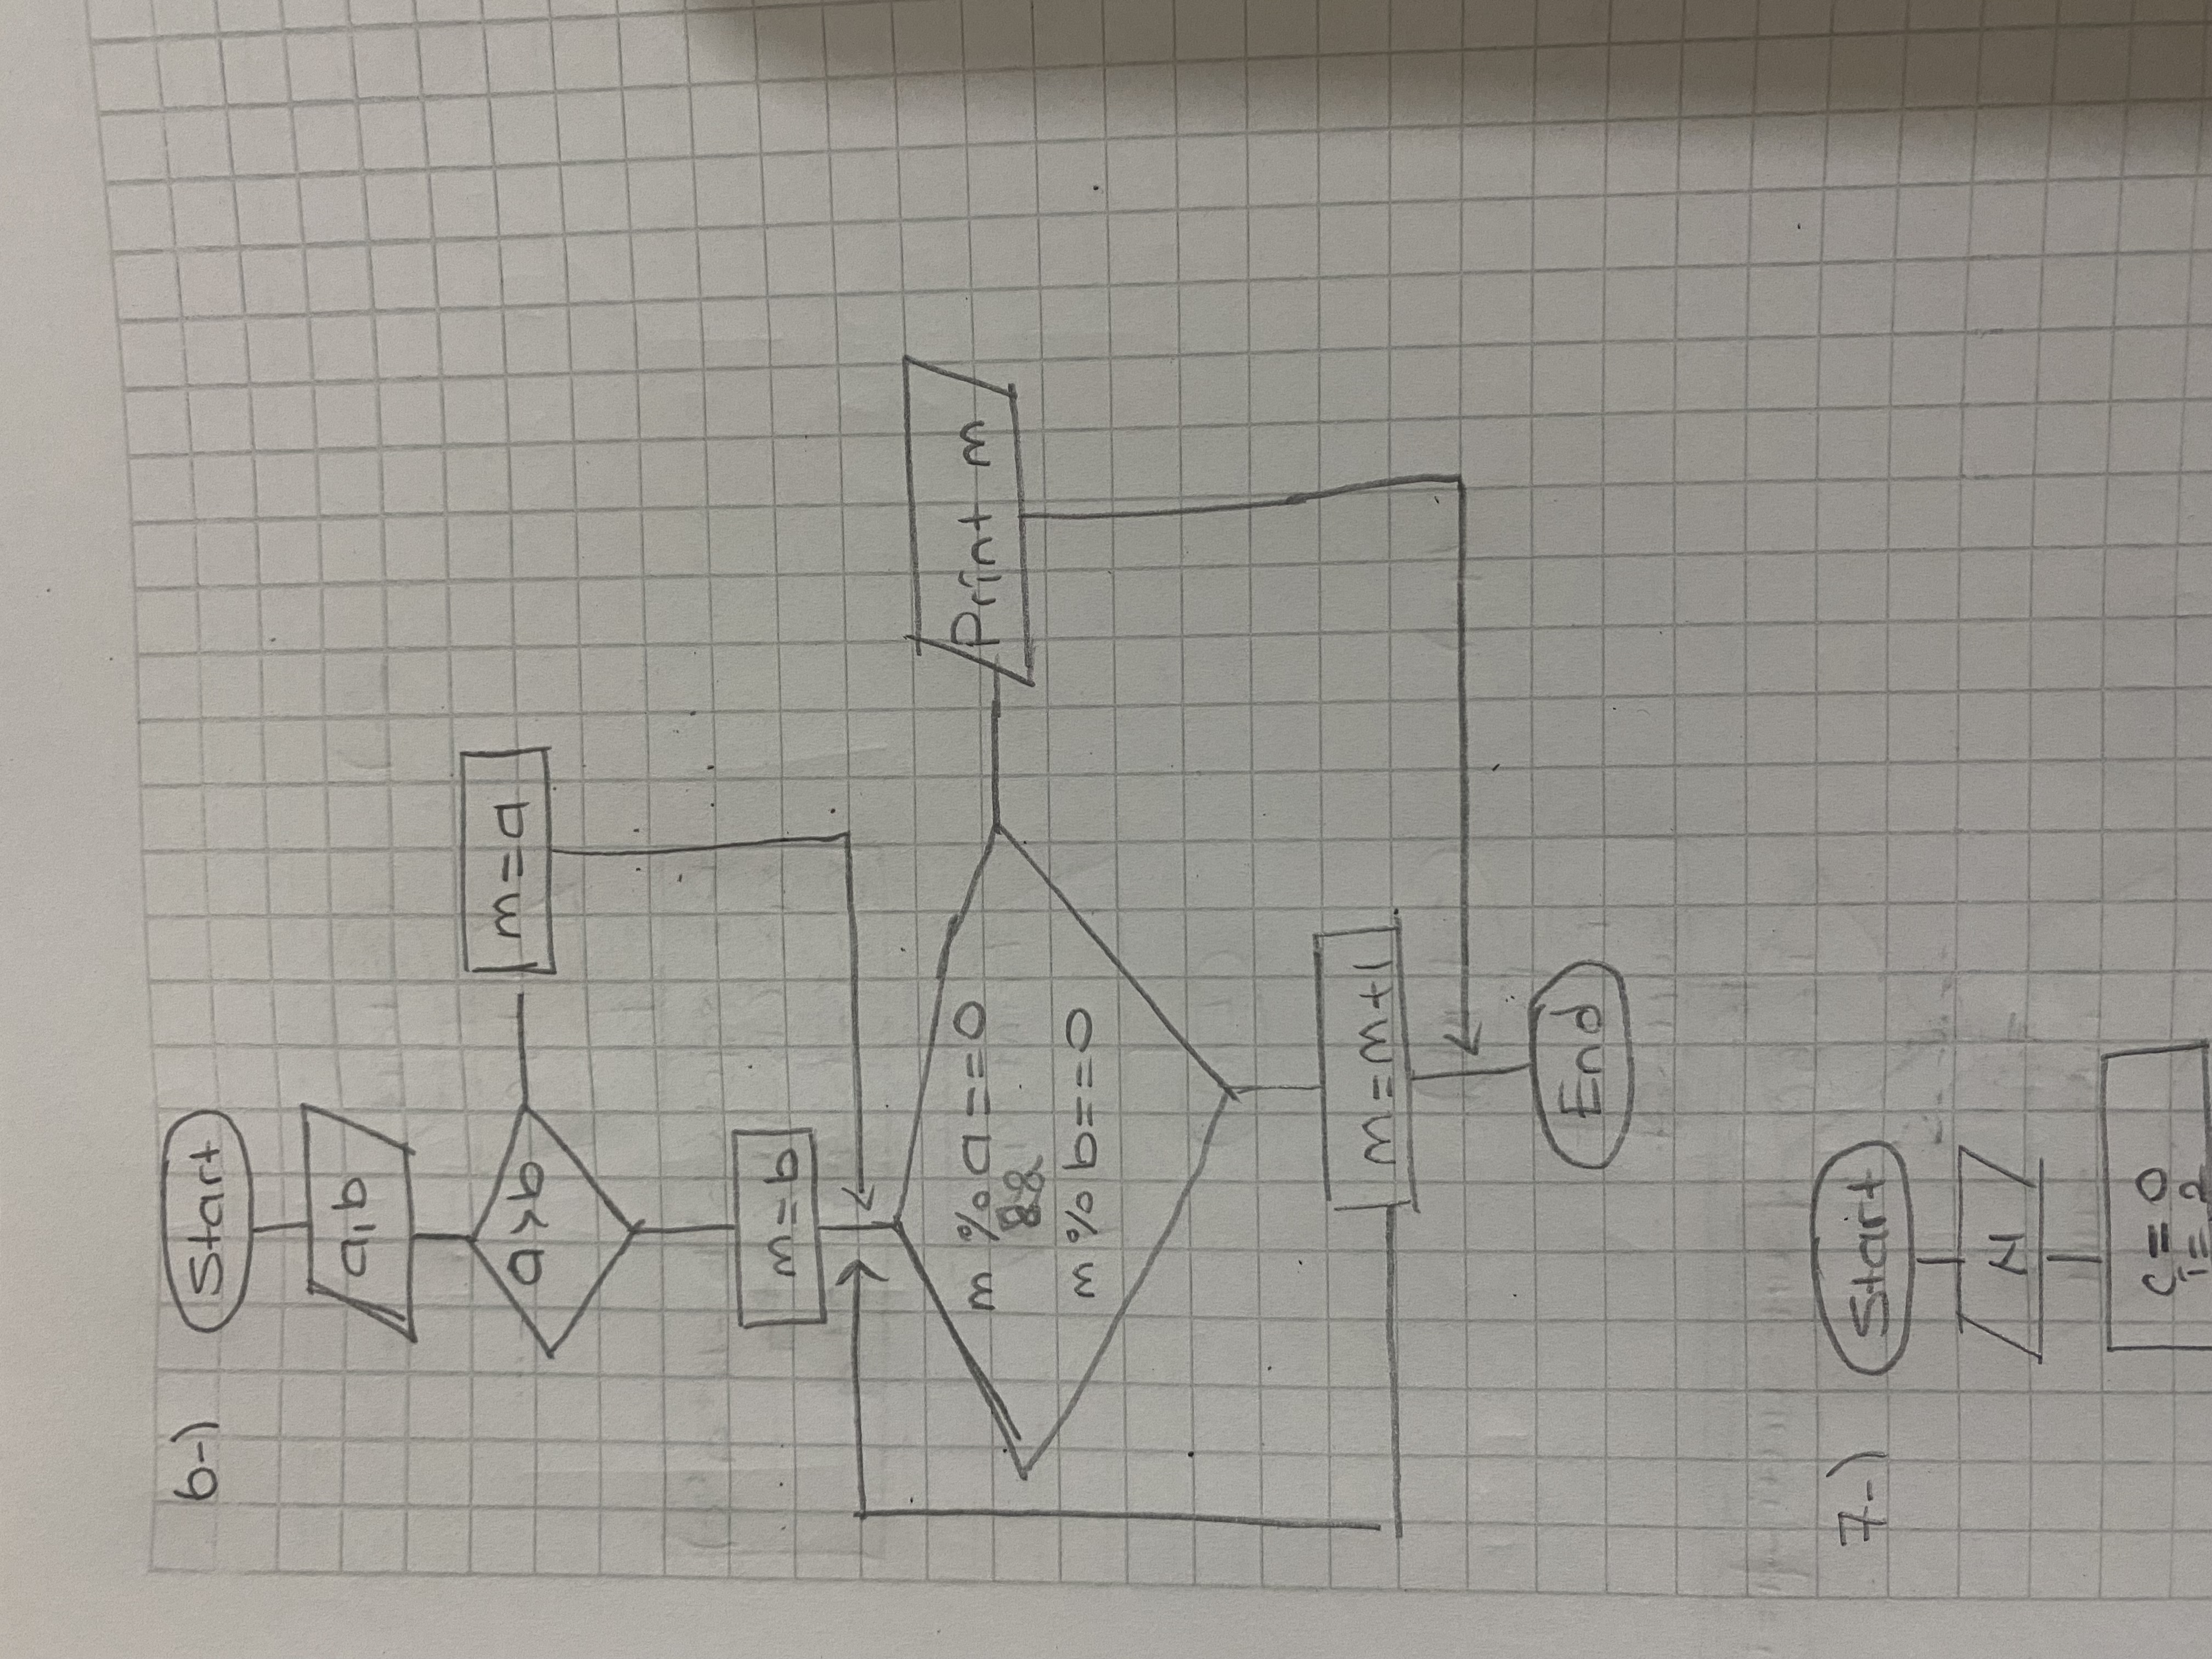 6-)
Start
a,b
a>b
m=a
m=b
m%a==0
&&
m%b==0
Print m
m=m+1
End
7-)
Start
N
c=0
i=2